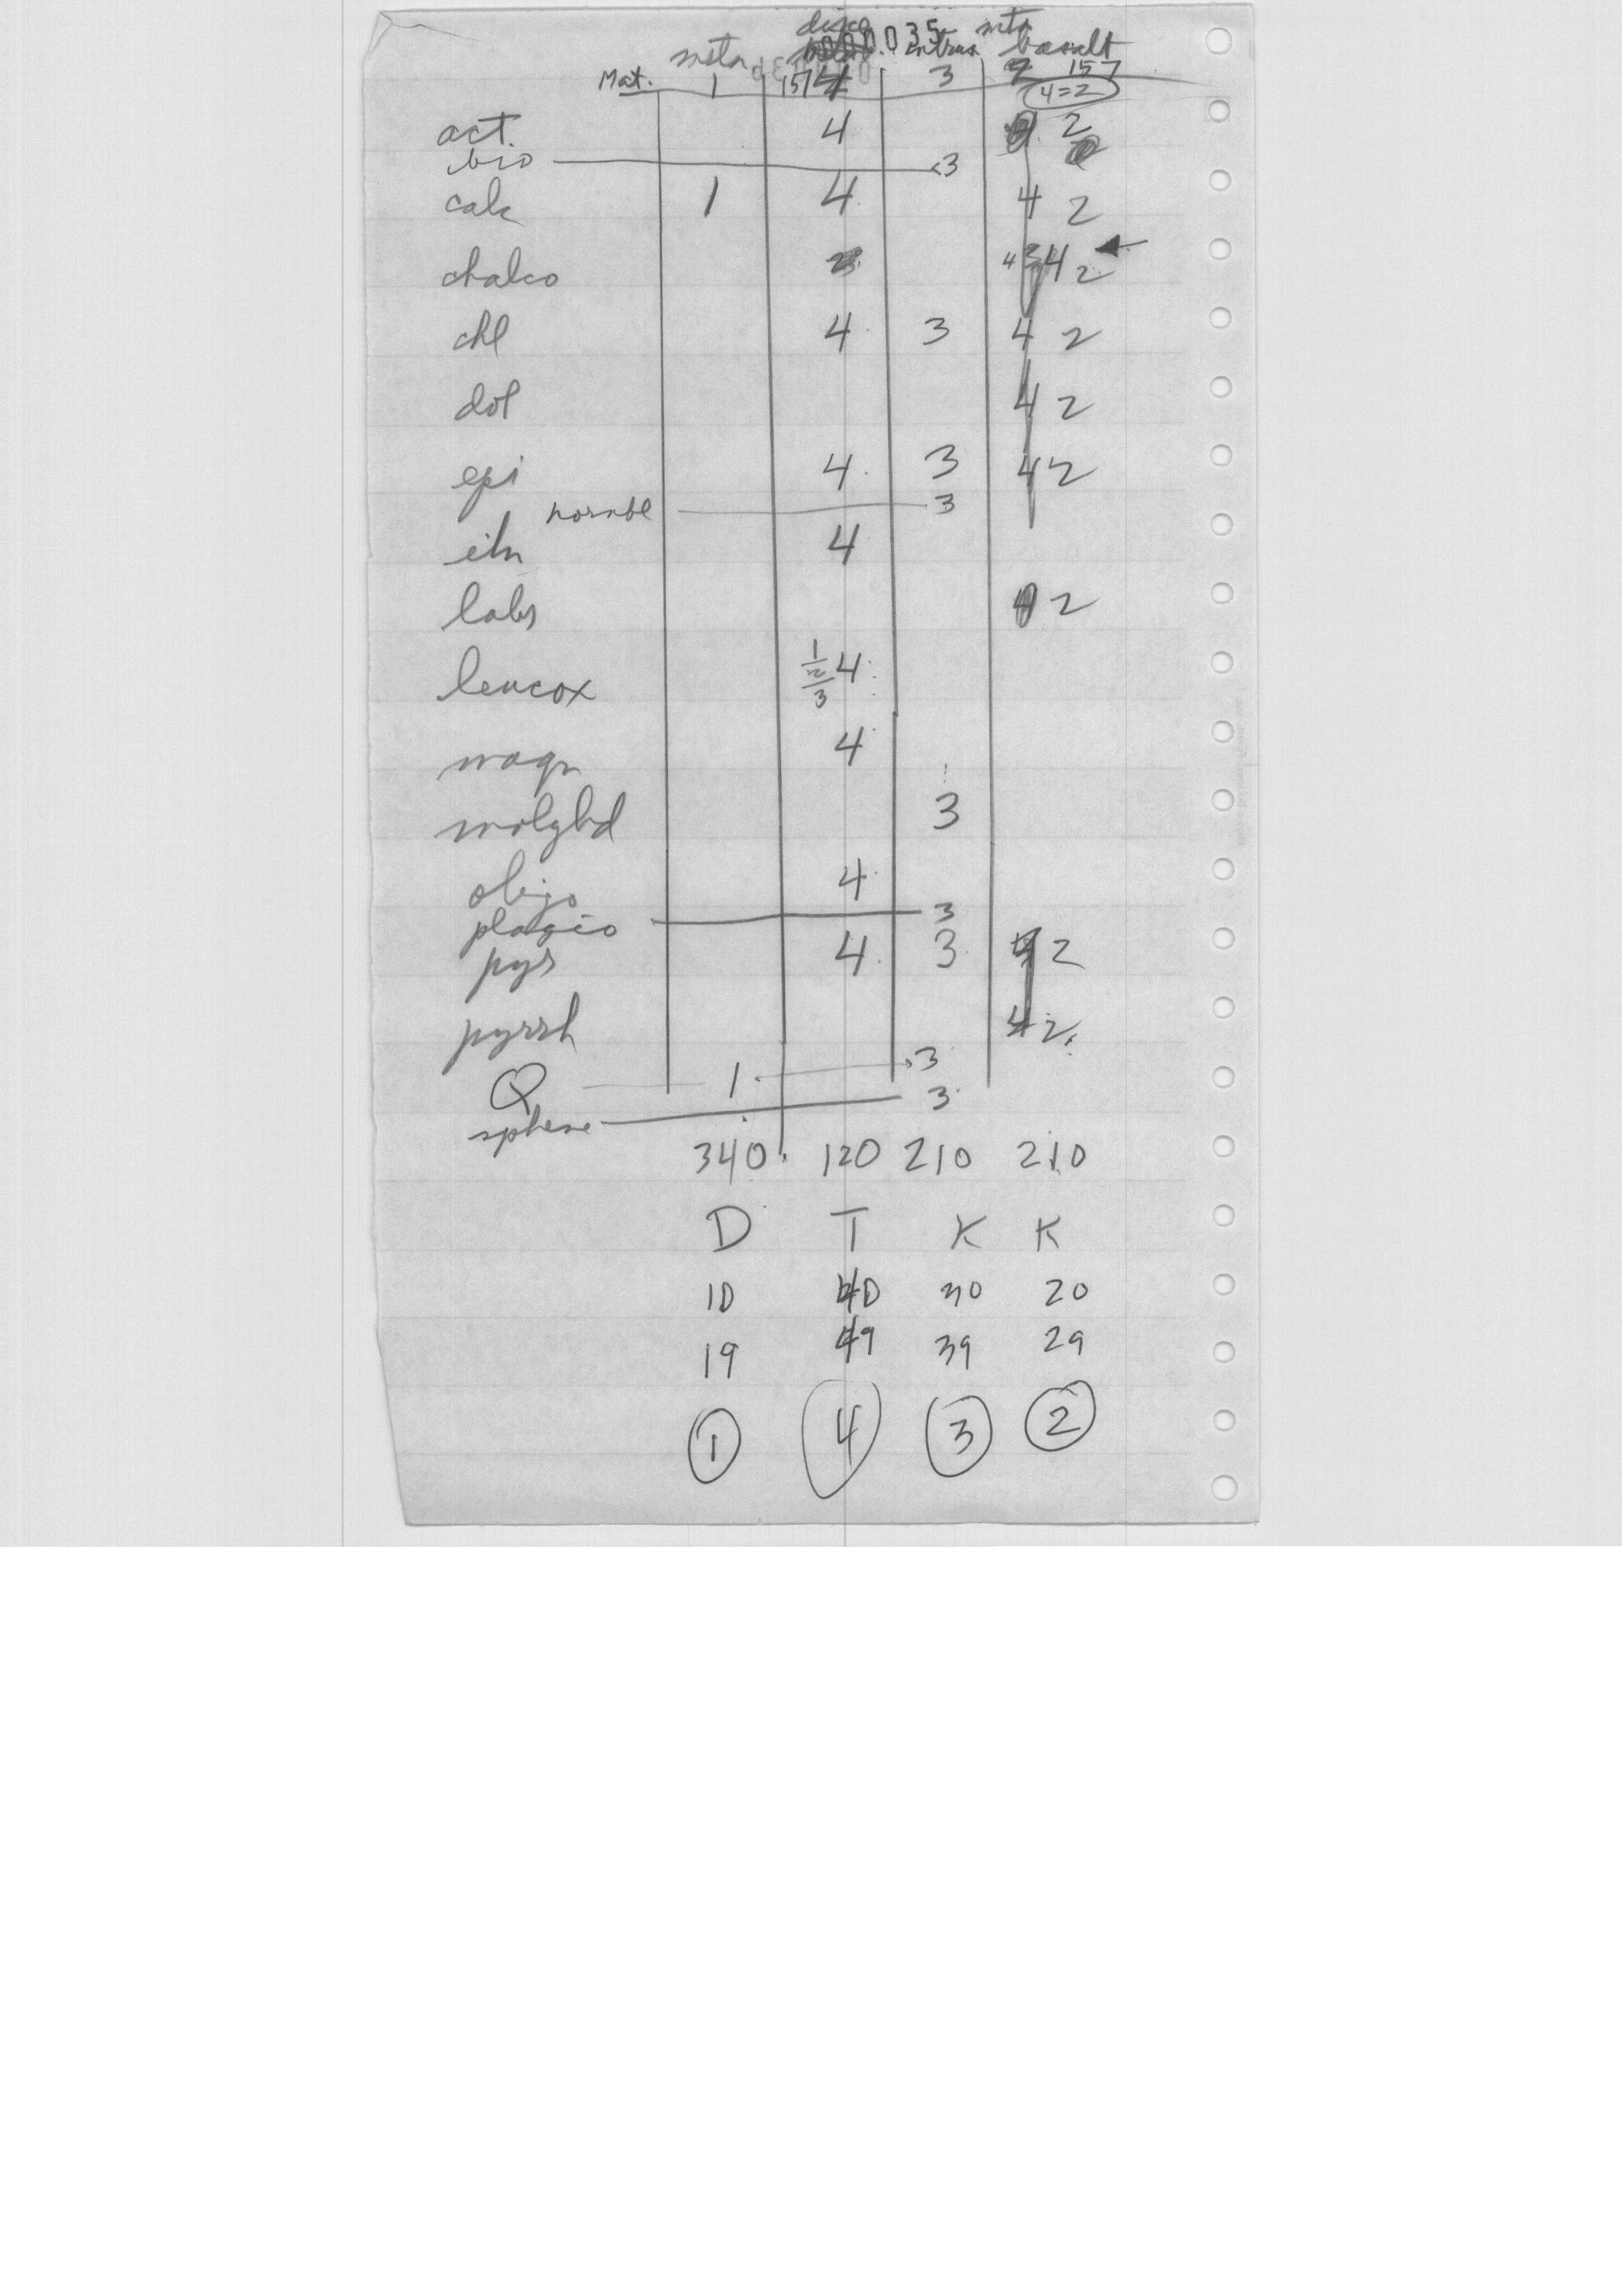 disco 0000035 mtn
mstn intrus basalt
Mat. 1 157 4 3 157
4=2
act. 4 2
bio 3
calc 1 4 4 2
chalco 4 4 2
chl 4 3 4 2
dol 4 2
epi 4 3 4 2
hornbl 3
ilm 4
labr 2
leucox 1 2 3 4
magn 4
molybd 3
oligo 4
plagio 3
pyr 4 3 2
pyrrh 4 2
Q 1 3
sphene 3
340 120 210 210
D T K K
10 40 30 20
19 49 39 29
1 4 3 2